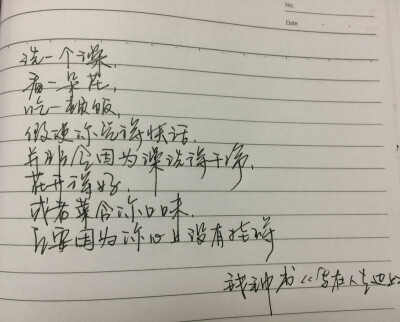 No.
Date
洗一个澡,
看一朵花,
吃一顿饭,
假使你觉得快活,
并非全因为澡洗得干净,
花开得好,
或者菜合你口味,
主要因为你心上没有挂碍
钱钟书《写在人生边上